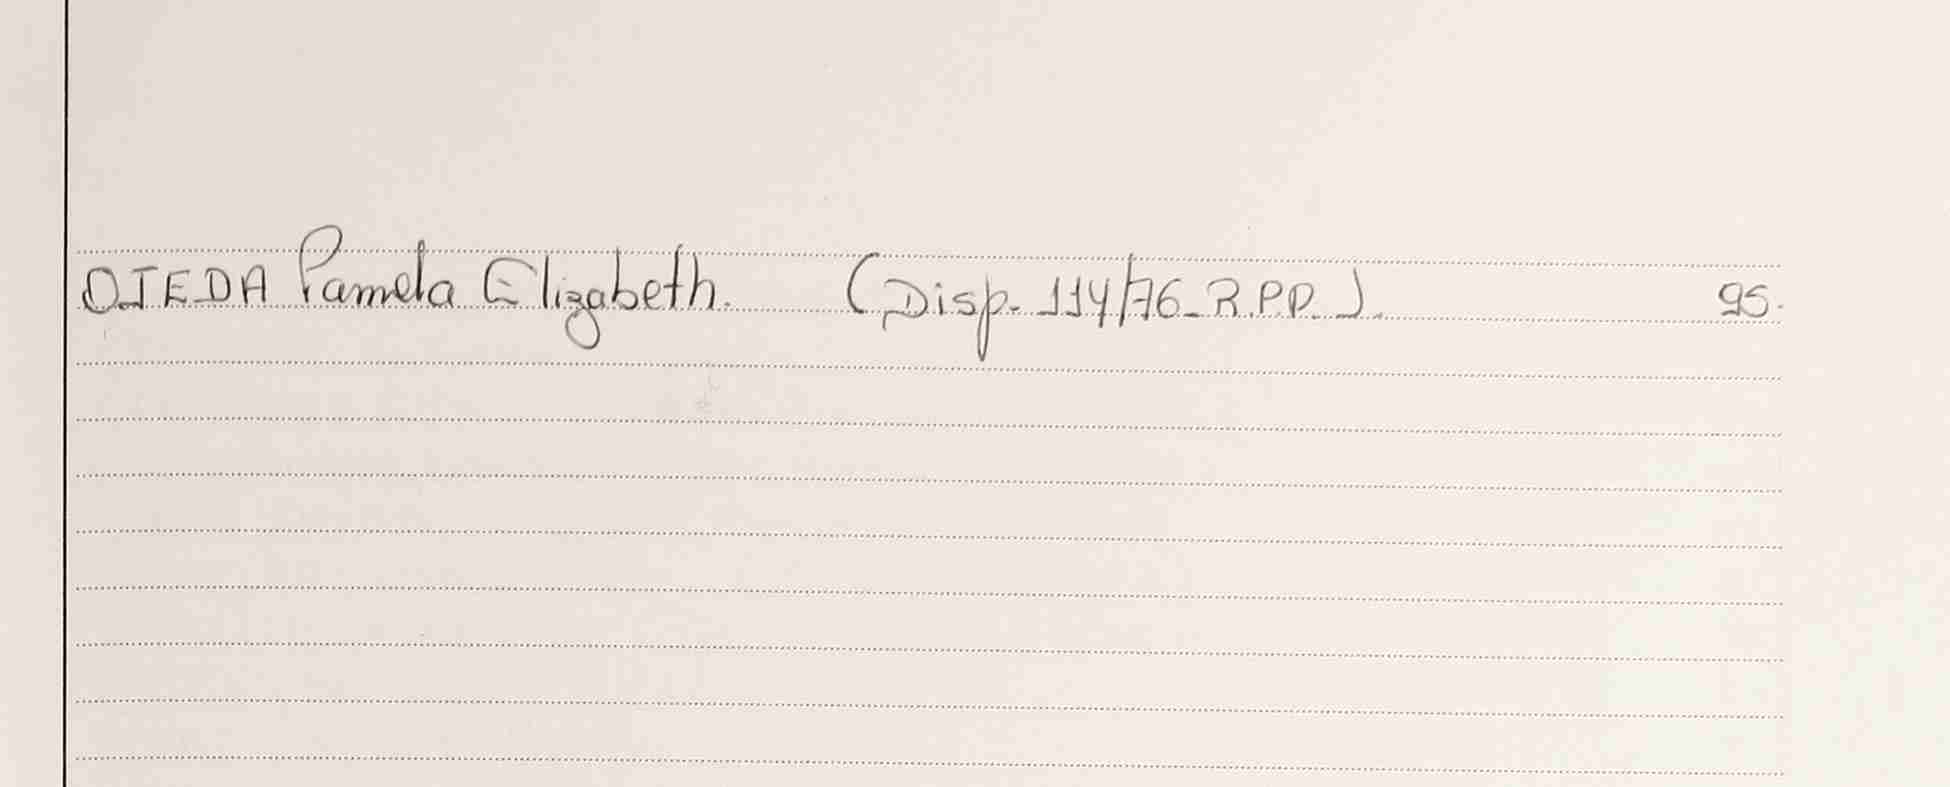 OJEDA Pamela Elizabeth. (Disp. 114/76_R.P.P.). 95.